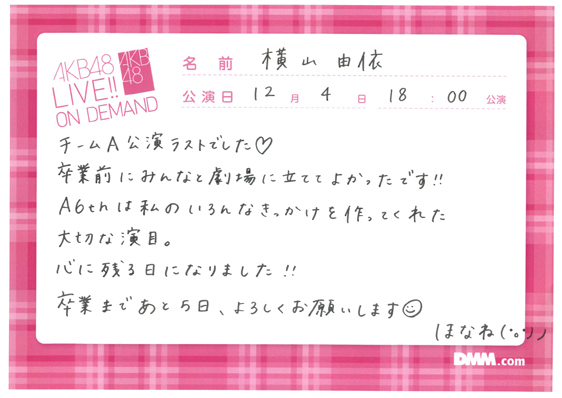 AKB48
LIVE!!
ON DEMAND
AKB
48
名前 横山 由依
公演日 12月 4日 18:00 公演
チームA公演ラストでした♡
卒業前にみんなと劇場に立ててよかったです!!
A6thは私のいろんなきっかけを作ってくれた
大切な演目。
心に残る日になりました!!
卒業まであと5日、よろしくお願いします☺
ほなね(˙o˙)ノ
DMM.com